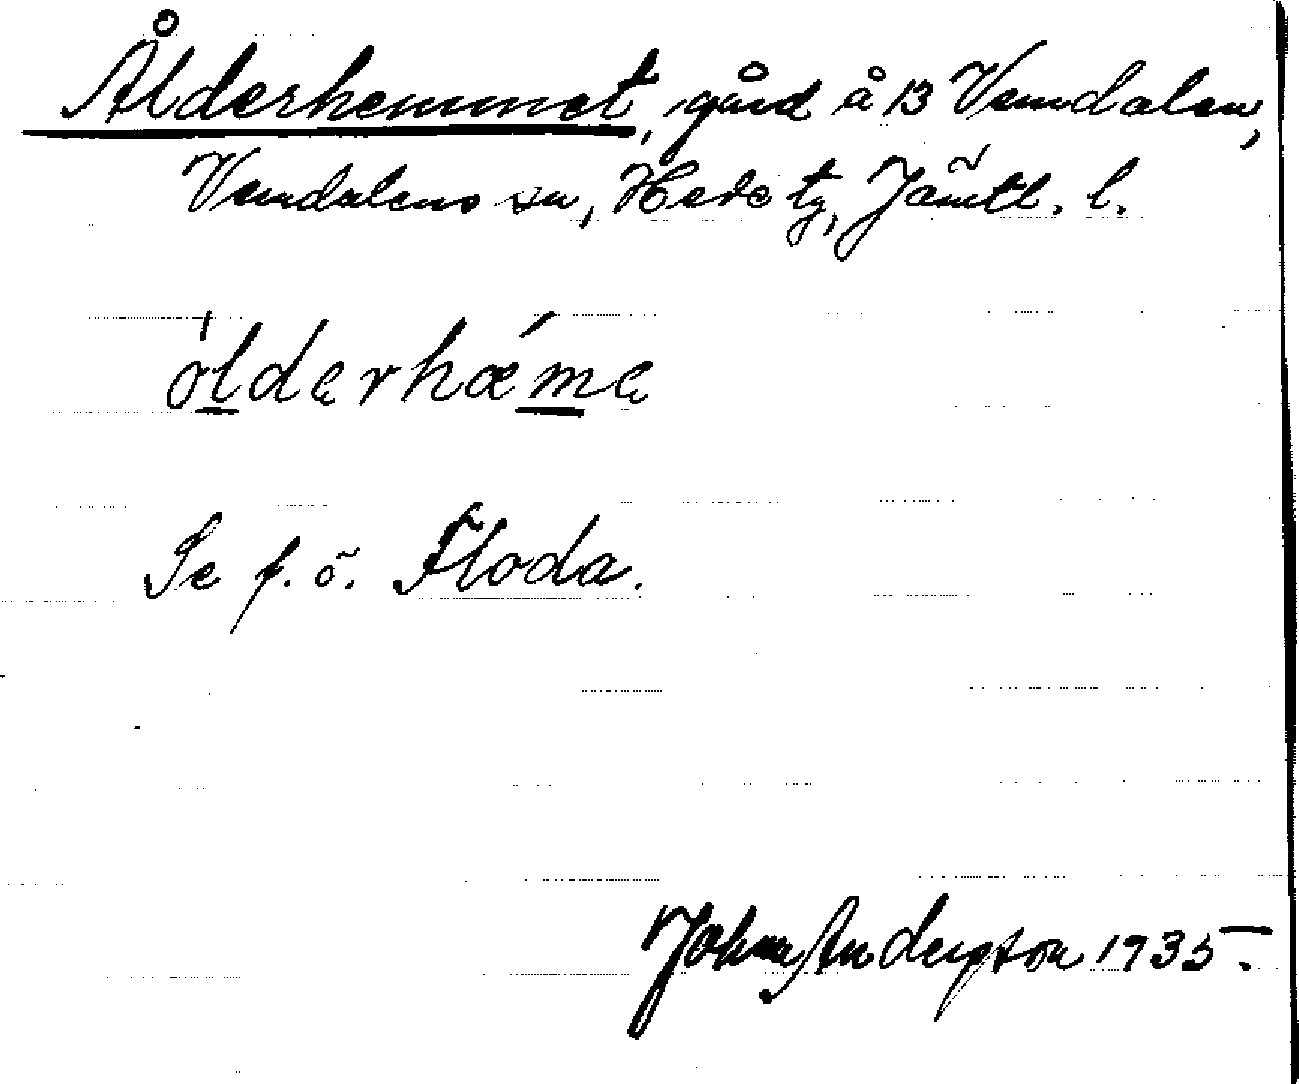 Ålderhemmet, gård å 13 Vemdalen,
Vemdalens sn, Hede tg, Jämtl. l.
ölderhæme
Se f. ö. Floda.
John Anderson 1935.